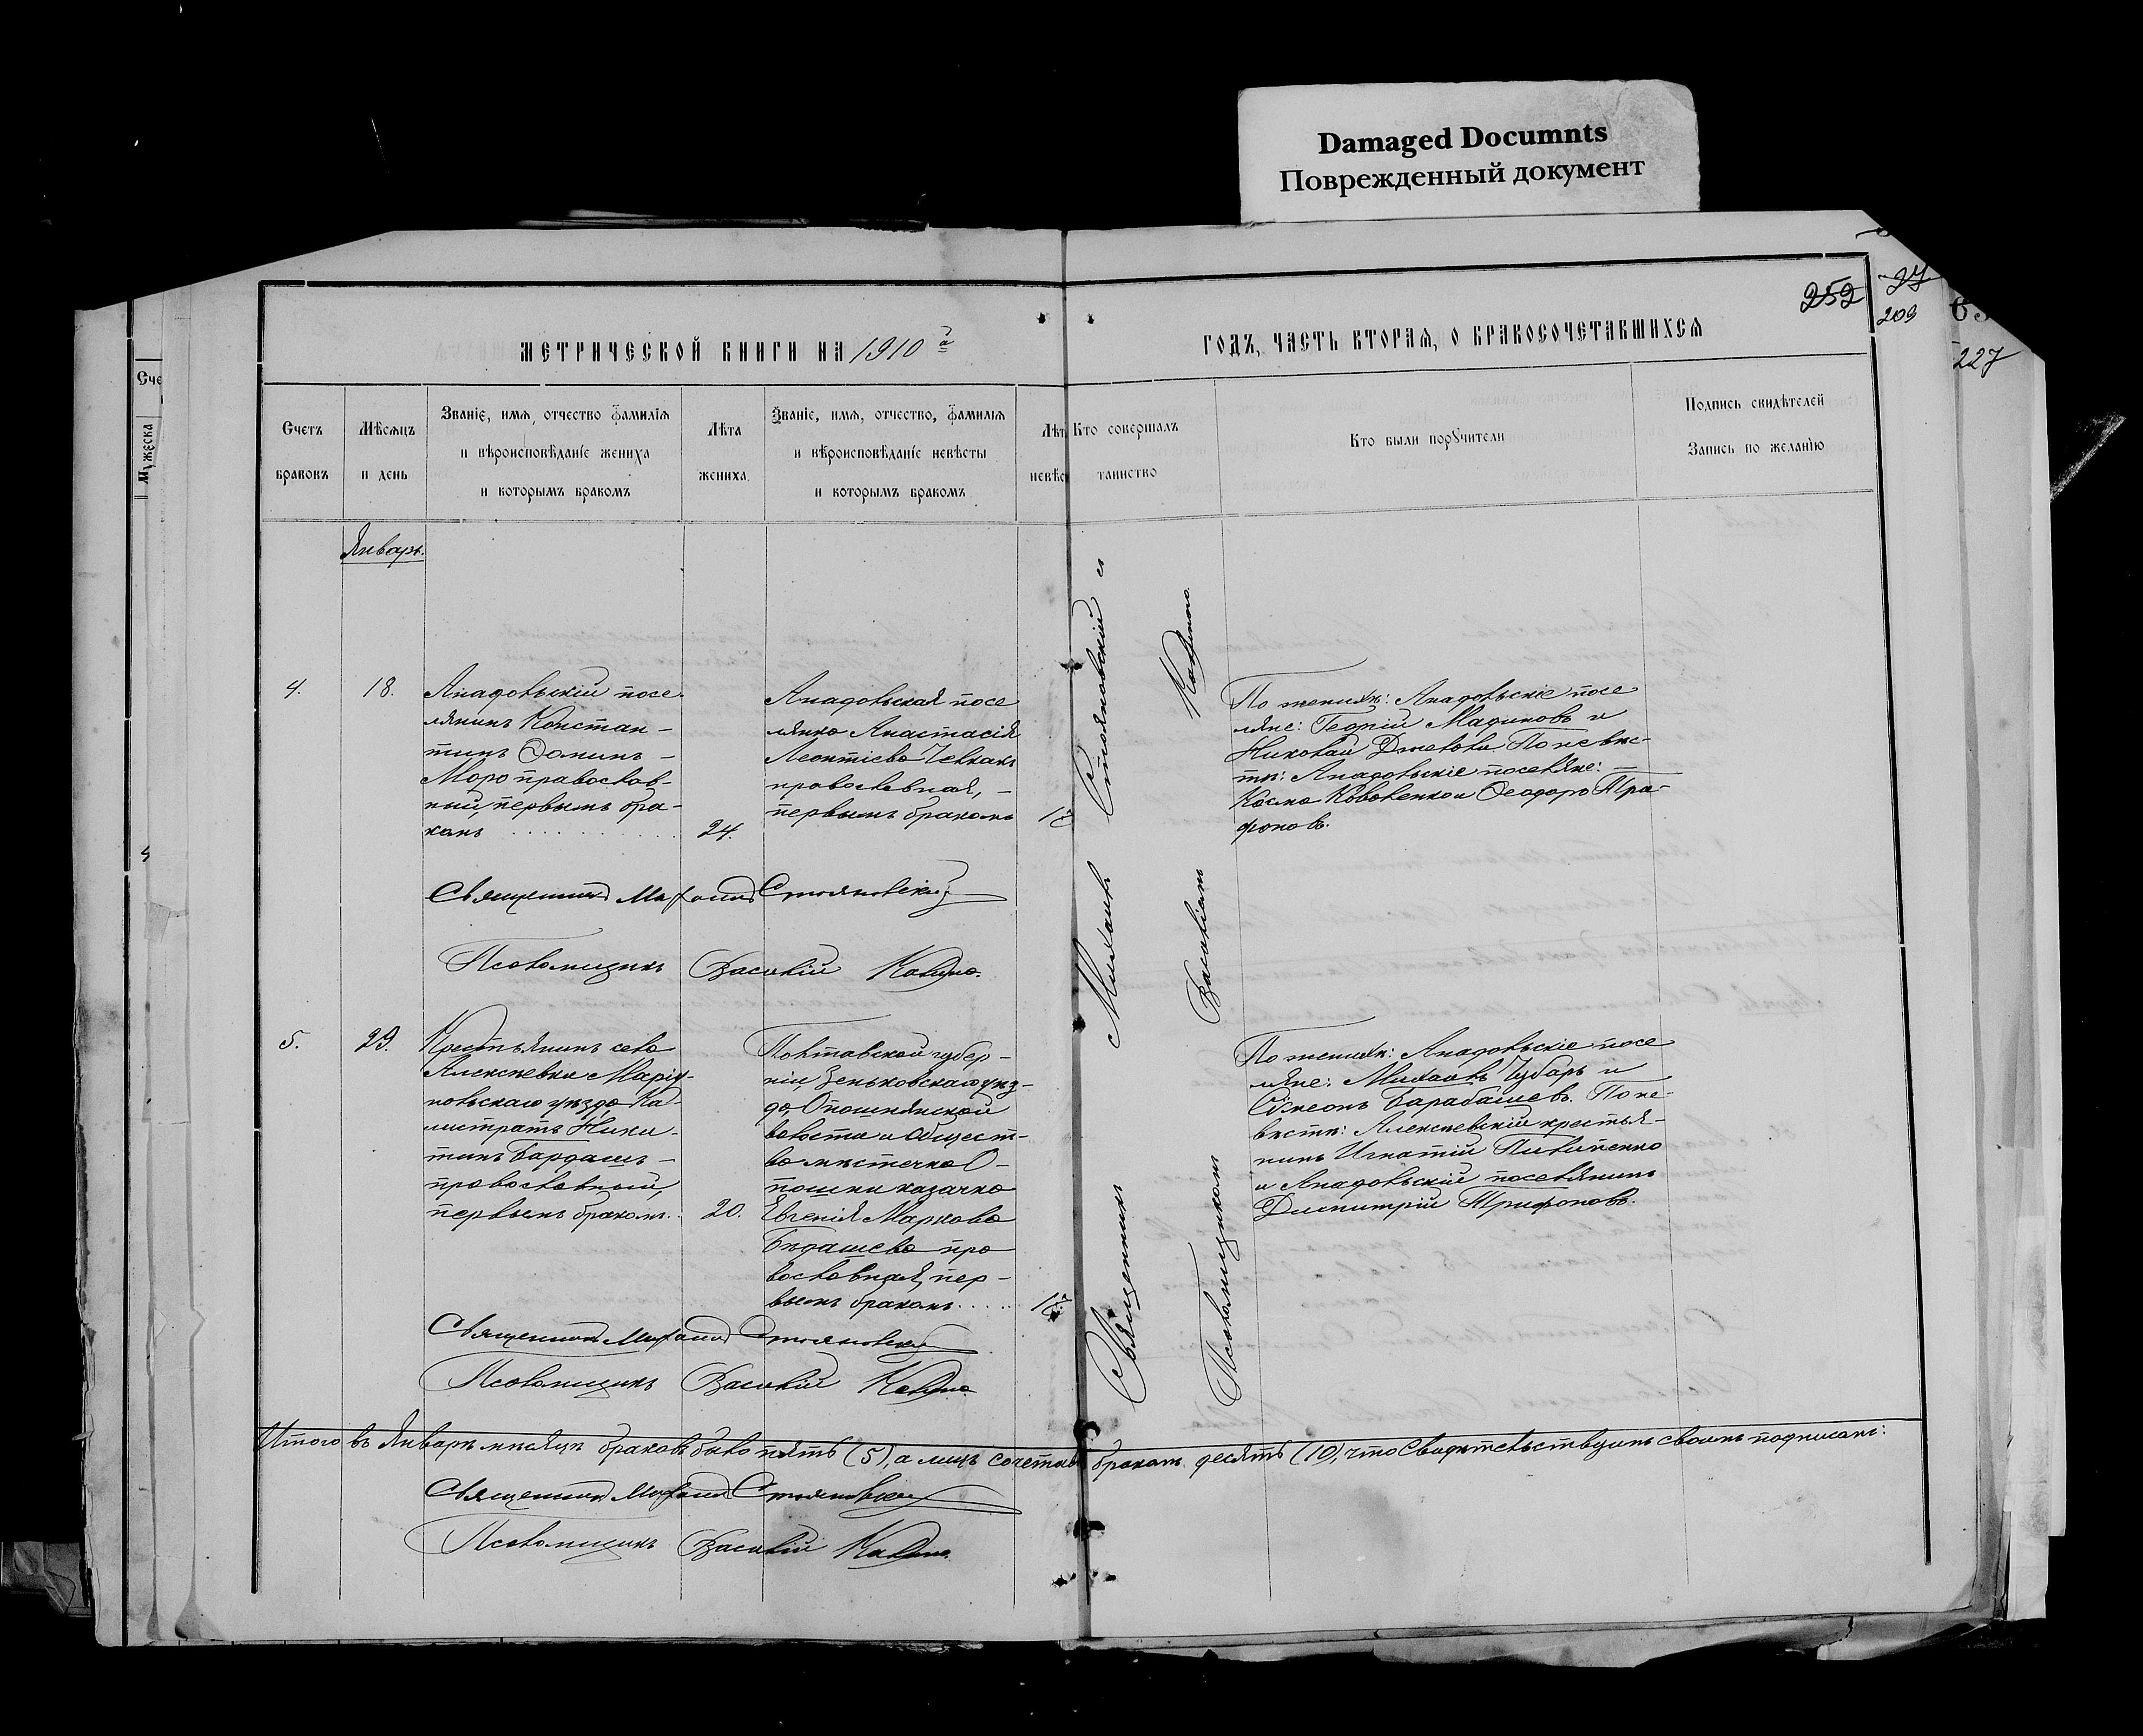 Damaged Documnts
Поврежденный документ
252
27
209
227
Метрической книги на 1910 й
годъ, часть вторая, о бракосочетавшихся
Счетъ
браковъ
Мѣсяцъ
и день
Званіе, имя, отчество фамилія
и вѣроисповѣданіе жениха
и которымъ бракомъ
Лѣта
жениха
Званіе, имя, отчество, фамилія
и вѣроисповѣданіе невѣсты
и которымъ бракомъ
Лѣт
невѣс
Кто совершалъ
таинство
Кто были поручители
Подпись свидѣтелей
Запись по желанію
Январь.
4.
18.
Анадольскій посе-
лянинъ Констан-
тинъ Ѳоминъ -
Моро православ-
ный, первымъ бра-
комъ
24.
Анадольская посе
лянка Анастасія
Леонтіева Челкакъ
православная, -
первымъ бракомъ
По женихѣ: Анадольскіе посе
ляне: Георгій Мадиновъ и
Николай Джелали. По невѣс-
тѣ: Анадольскіе поселяне:
Косма Коваленко и Ѳеодоръ Три-
фоновъ.
Священникъ Михаилъ Стояновскій
Псаломщикъ Василій
5.
29.
Крестьянинъ села
Алексѣевки Маріу-
польскаго уѣзда Ка-
листратъ Ники-
тинъ Бардашъ -
православный,
первымъ бракомъ.
20.
Полтавской губер-
ніи Зеньковскаго уѣз-
да, Опошнянской
волости и общест-
ва мѣстечка О-
пошни казачка
Евгенія Маркова
Бѣдашева пра
вославная, пер-
вымъ бракомъ
По женихѣ: Анадольскіе посе
ляне: Михаилъ Чубарь и
Сѵмеонъ Барабашевъ. По не-
вѣстѣ: Алексѣевскій крестья-
нинъ Игнатій Пилипенко
и Анадольскій поселянинъ
Димитрій Трифоновъ.
Священникъ Михаилъ Стояновскій
Псаломщикъ Василій
Священникъ Михаилъ Стояновскій съ
Псаломщикомъ Василіемъ
Итого въ Январѣ мѣсяцѣ браковъ было пять (5), а лицъ сочетав бракомъ десять (10), что свидѣтельствуемъ своимъ подписомъ:
Священникъ Михаилъ Стояновскій
Псаломщикъ Василій